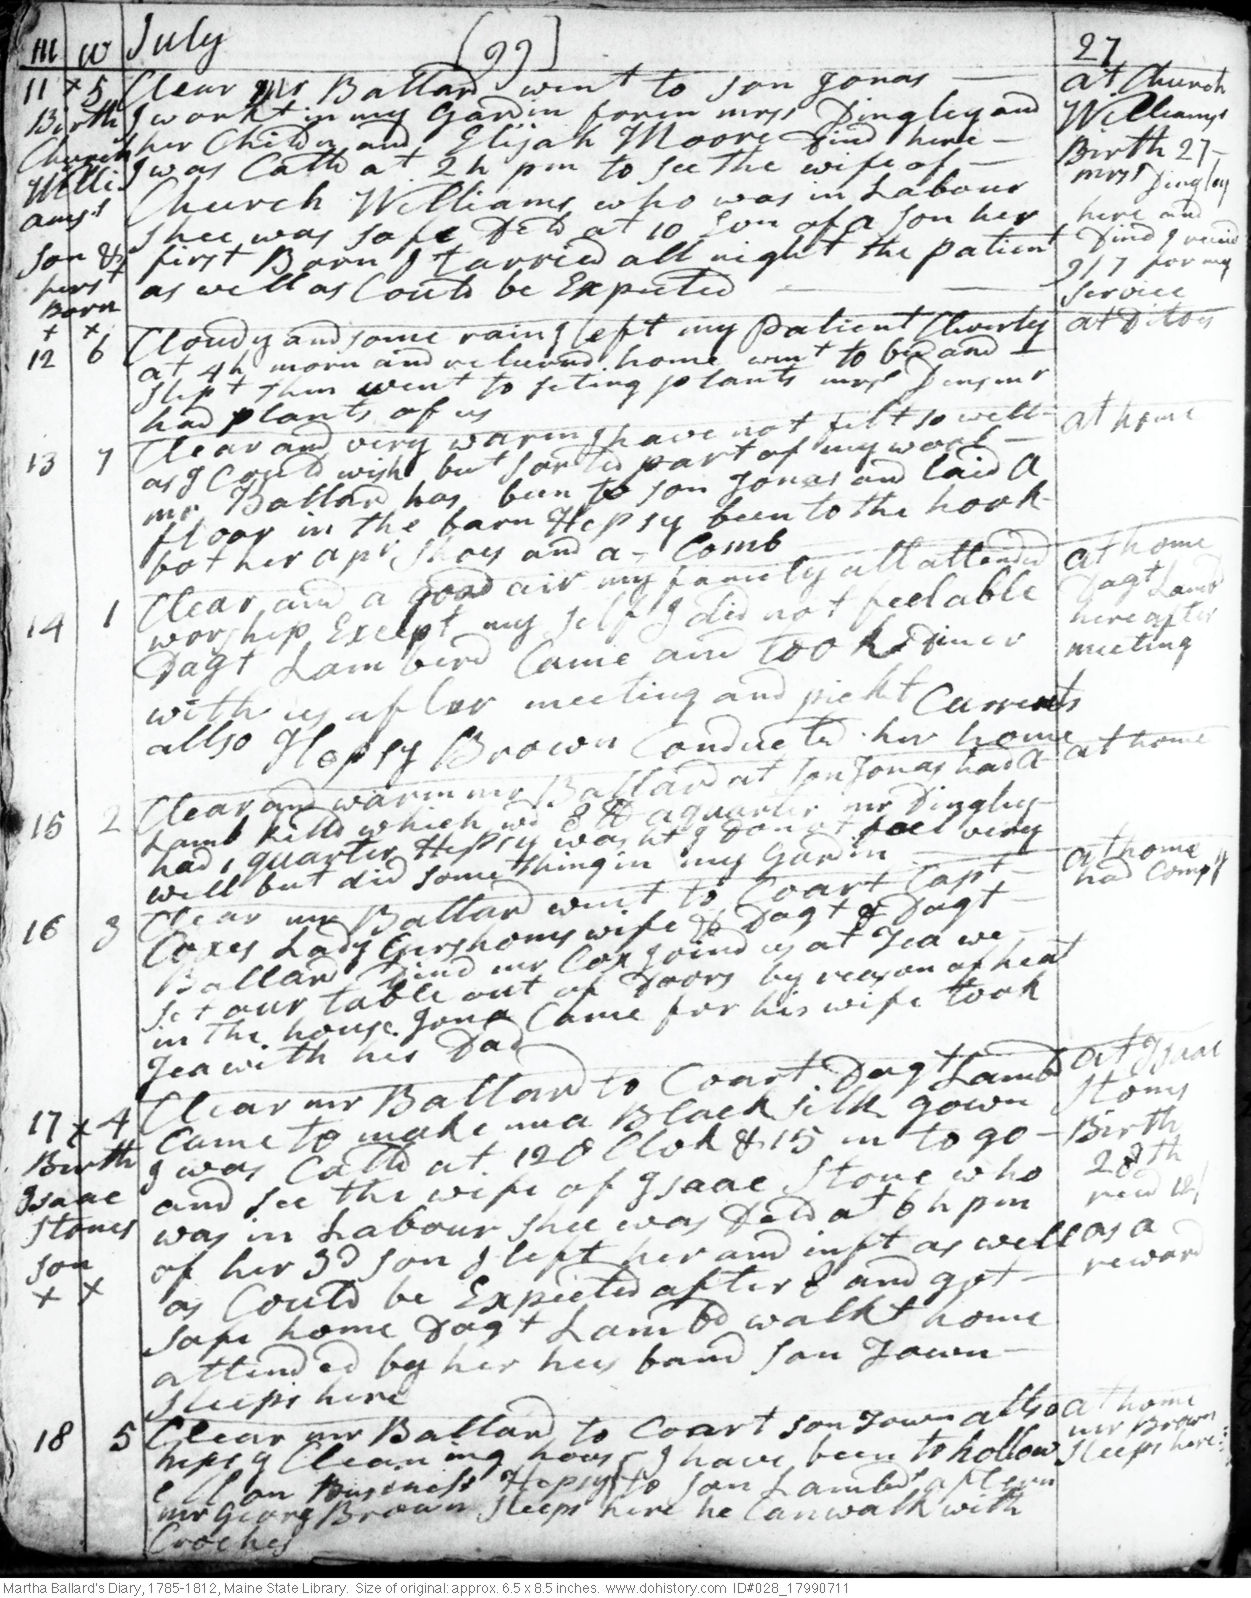 m w July (99) 27
11 x 5 Clear mr Ballard went to son Jonas — at Church
Birth I workt in my Gardin foren mrss Dingley and Williams
Church her Childn and Elijah Moore Dind here — Birth 27 —
Willi I was Calld at 2 h pm to see the wife of — mrss Dingley
ams's Church Williams who was in Labour here and
shee was safe Deld at 10 Evn of a son her Dind I recevd
son & first Born I tarried all night the patient 9/7 for my
first as well as Could be Expected — service
Born
x x
12 6 Cloudy and some rain I left my patient Cleverly at Ditoes
at 4 h morn and returned home went to bed and —
slept then went to seting plants mrss
had plants of us
13 7 Clear and very warm I have not felt so well — at home
as I Could wish but sorted part of my wool —
mr Ballard has been to son Jonas and laid a
floor in the barn Hepsy been to the hook
bot her a pr Shoes and a — Comb
14 1 Clear and a good air my family all attended at home
worship Except my self I did not feel able Dagt Lambd
Dagt Lamberd Came and took Diner here after
with us after meeting and pickt Currents meeting
allso Hepsy Brown Conducted her home
15 2 Clear and warm mr Ballard at son Jonas had a at home
Lamb killd which wd 8 lb a quarter mr Dingley
had 1 quarter Hepsy washt I Donot feel very
well but did some thing in my Gardin
16 3 Clear mr Ballard went to Coart Capt — at home
Coxes Lady Gershoms wife & Dagt & Dagt — had Compy
Ballard Dind mr Cox joind us at Tea we —
set our table out of Doors by reason of heat
in the house. Jona Came for his wife took
Tea with his Dad
17 x 4 Clear mr Ballard to Coart Dagt Lambd at Isaac
Birth Came to make me a Black silk gown Stones
Isaac I was Calld at 12 O Clok & 15 m to go — Birth
Stones and see the wife of Isaac Stone who 28th
son was in Labour shee was Deld at 6 h pm recd 12/
x x of her 3d son I left her and inft as well as a
as Could be Expected after 8 and got — reward
safe home Dagt Lambd walkt home
attended by her husband son Town —
sleeps here
18 5 Clear mr Ballard to Coart son Town allso at home
hepsy Cleaning hous I have been to hollow mr Brown
ell on business Hepsy to son Lambds aftern sleeps here
mr Georg Brown sleeps here he Can walk with
Croches
Martha Ballard's Diary, 1785-1812, Maine State Library. Size of original: approx. 6.5 x 8.5 inches. www.dohistory.com ID#028_17990711